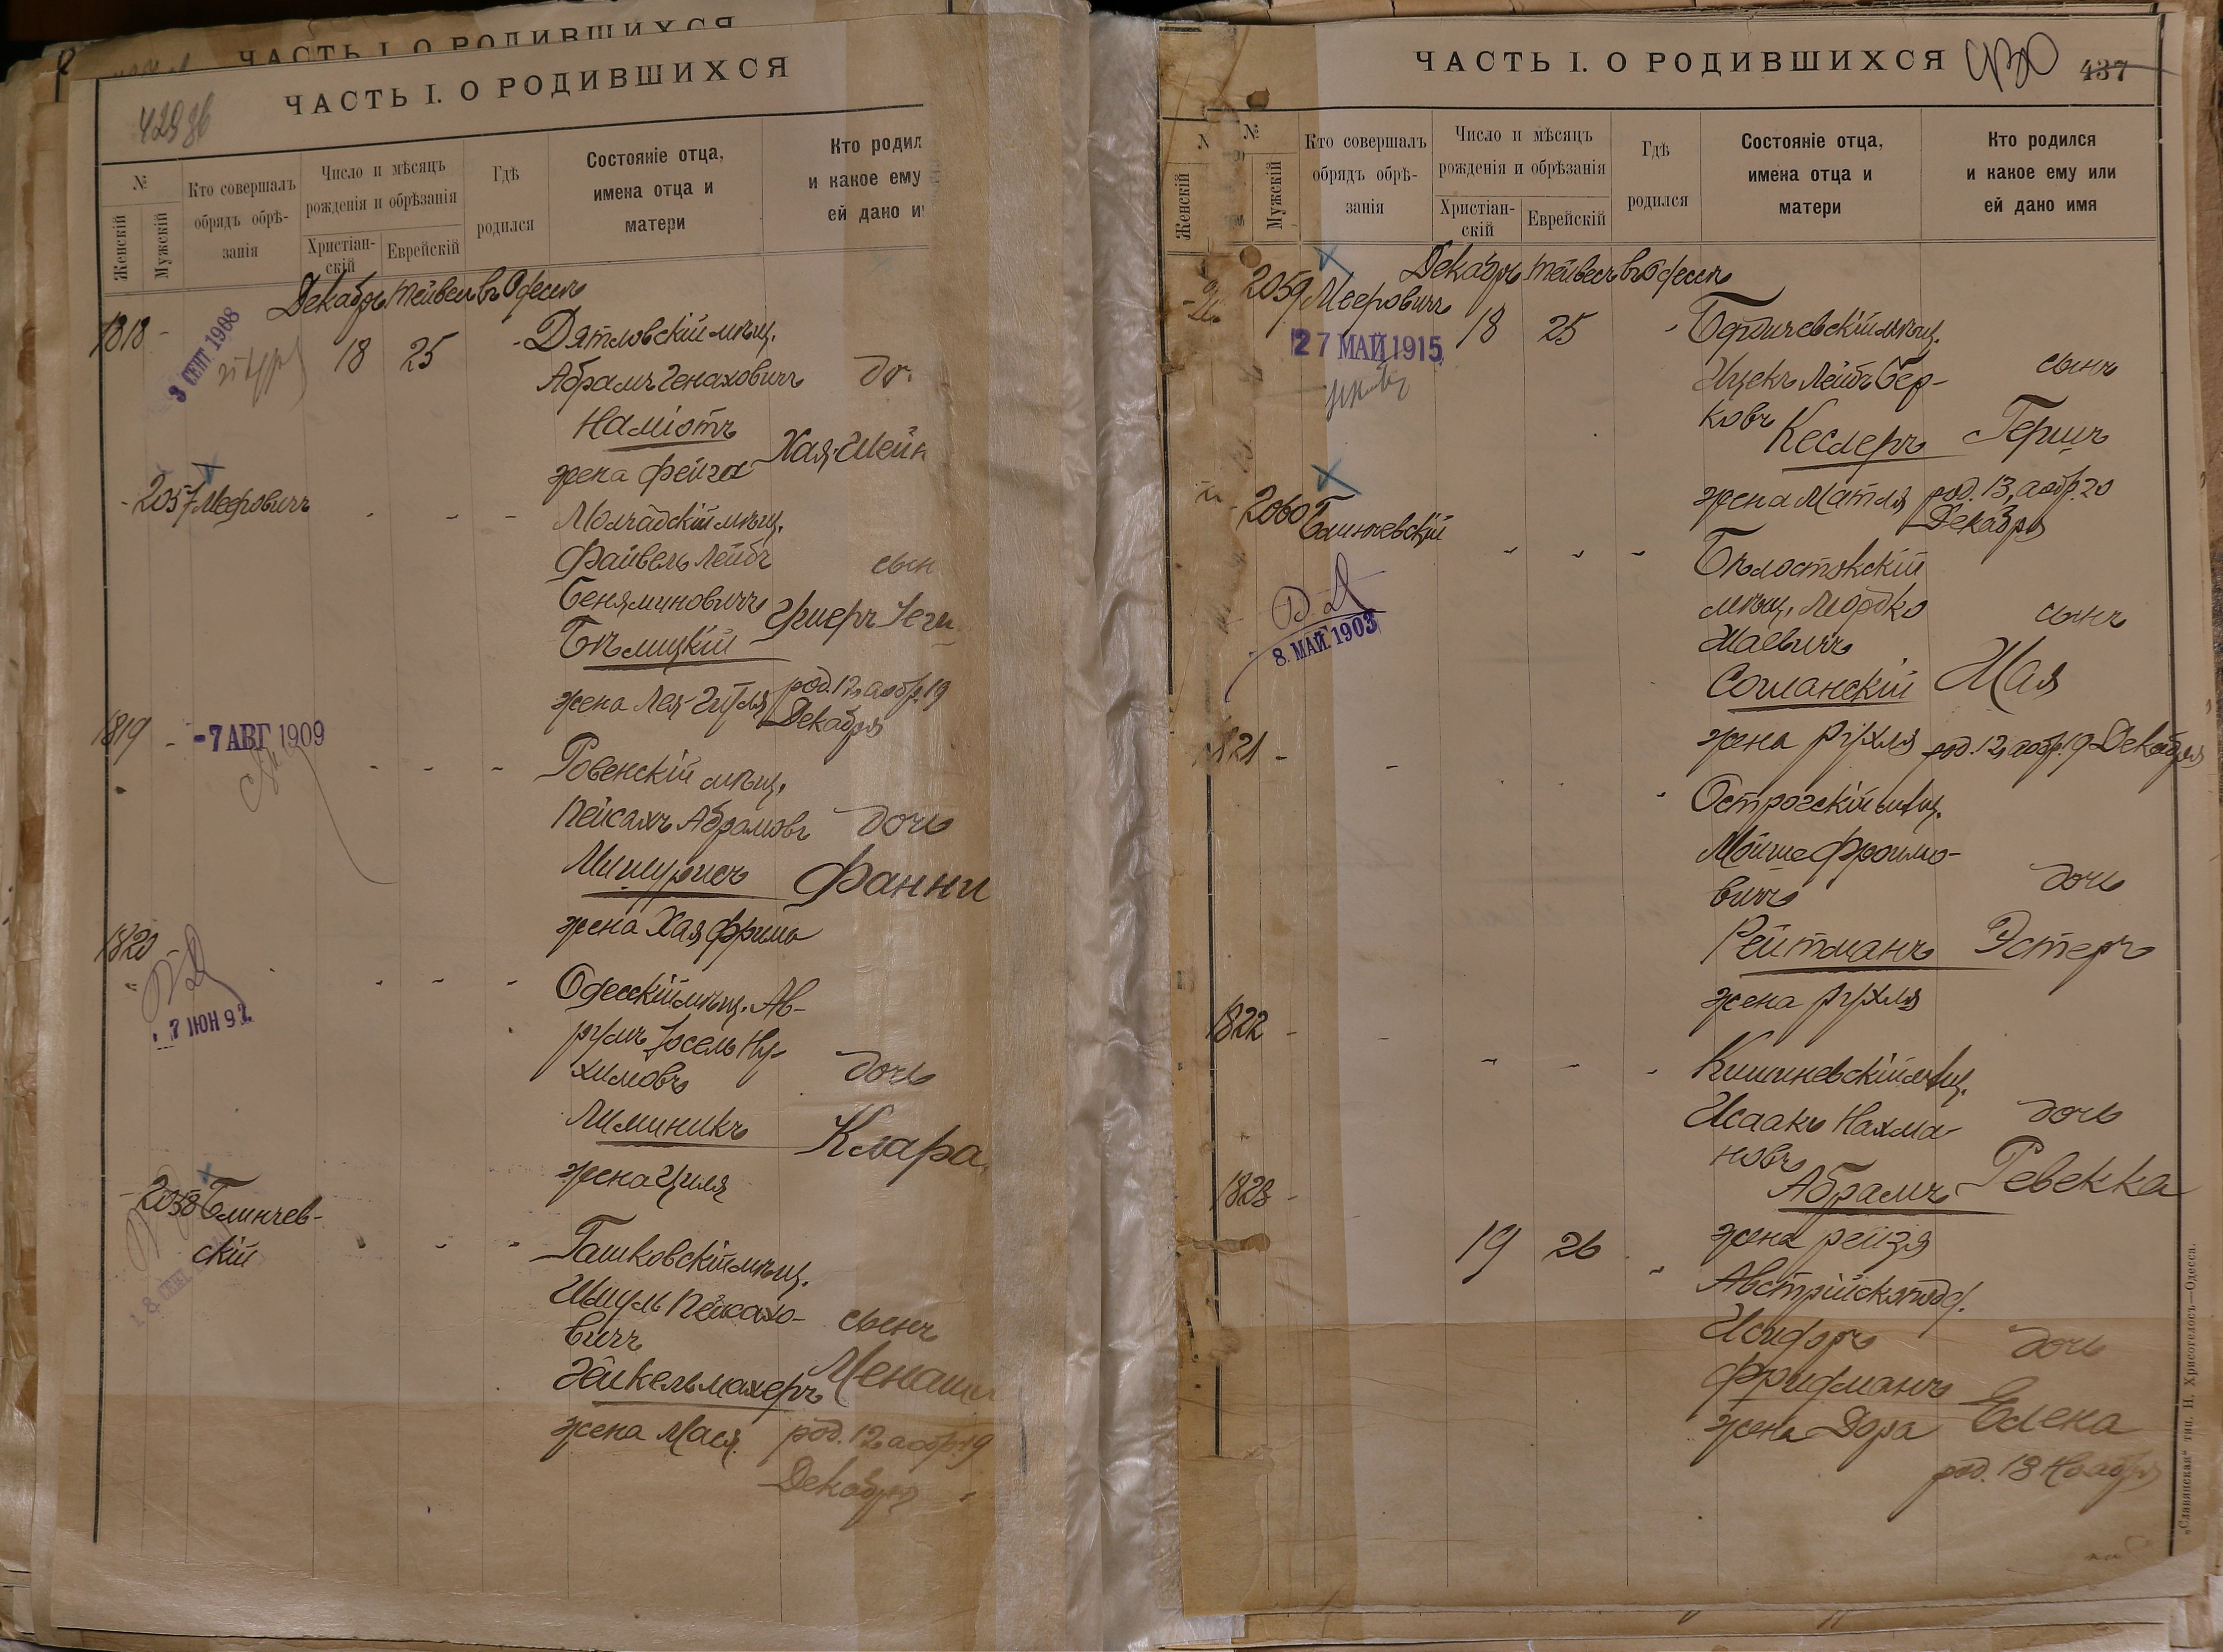 ЧАСТЬ I. О РОДИВШИХСЯ
ЧАСТЬ I. О РОДИВШИХСЯ
№
Женскій
Мужскій
Кто совершалъ
обрядъ обрѣ-
занія
Число и мѣсяцъ
рожденія и обрѣзанія
Христіан-
скій
Еврейскій
Гдѣ
родился
Состояніе отца,
имена отца и
матери
Кто родил
и какое ему
ей дано и
Декабрь Тейвесъ въ Одессѣ
1818 -
3 СЕНТ 1908
18 25
Дятловскій мѣщ.
Абрамъ Генаховичъ
Наміотъ
жена Фейга
до
Хая-Шейн
- 2057 Мееровичъ
Молчадскій мѣщ.
Файвель Лейбъ
Беняминовичъ
Бѣлицкій
жена Лея-Гитля
сын
Ушеръ Зели
род. 12, аобр. 19
Декабря
1819 -
-7 АВГ 1909
Ровенскій мѣщ.
Пейсахъ Абрамовъ
Мишурисъ
жена Хая Фрима
дочь
Фанни
1820 -
7 ІЮН 97.
Одесскій мѣщ. Ав-
румъ Іосель Ну-
химовъ
Лиминикъ
жена Циля
дочь
Клара
- 2058 Блинчев-
скій
Рашковскій мѣщ.
Шмуль Пейсахо-
вичъ
Зейкельмахеръ
жена Мася.
сынъ
Менаши
род. 12, аобр. 19
Декабря
ЧАСТЬ I. О РОДИВШИХСЯ
430
437
№
№
Женскій
Мужскій
Кто совершалъ
обрядъ обрѣ-
занія
Число и мѣсяцъ
рожденія и обрѣзанія
Христіан-
скій
Еврейскій
Гдѣ
родился
Состояніе отца,
имена отца и
матери
Кто родился
и какое ему или
ей дано имя
Декабрь Тейвесъ въ Одессѣ
2059 Мееровичъ
27 МАЙ 1915
18 25
Бердичевскій мѣщ.
Ицекъ Лейбъ Бер-
ковъ
Кеслеръ
жена Матля
сынъ
Гершъ
род. 13, аобр. 20
Декабря
2060 Блинчевскій
8. МАЙ 1903
Бѣлостокскій
мѣщ. Мордко
Шаевичъ
Сошанскій
жена Рухля
сынъ
Шая
род. 12, аобр. 19 Декабря
1821 -
Острогскій мѣщ.
Мойше Фроимо-
вичъ
Рейтманъ
жена Рухля
дочь
Эстеръ
1822 -
Кишиневскій мѣщ.
Исаакъ Нахма-
новъ
Абрамъ
жена Рейзя
дочь
Ревекка
1823 -
19 26
Австрійск. подд.
Исидоръ
Фридманъ
жена Дора
дочь
Елена
род. 18 Ноября
„Славянская“ тип. Н. Хрисогелосъ—Одесса.